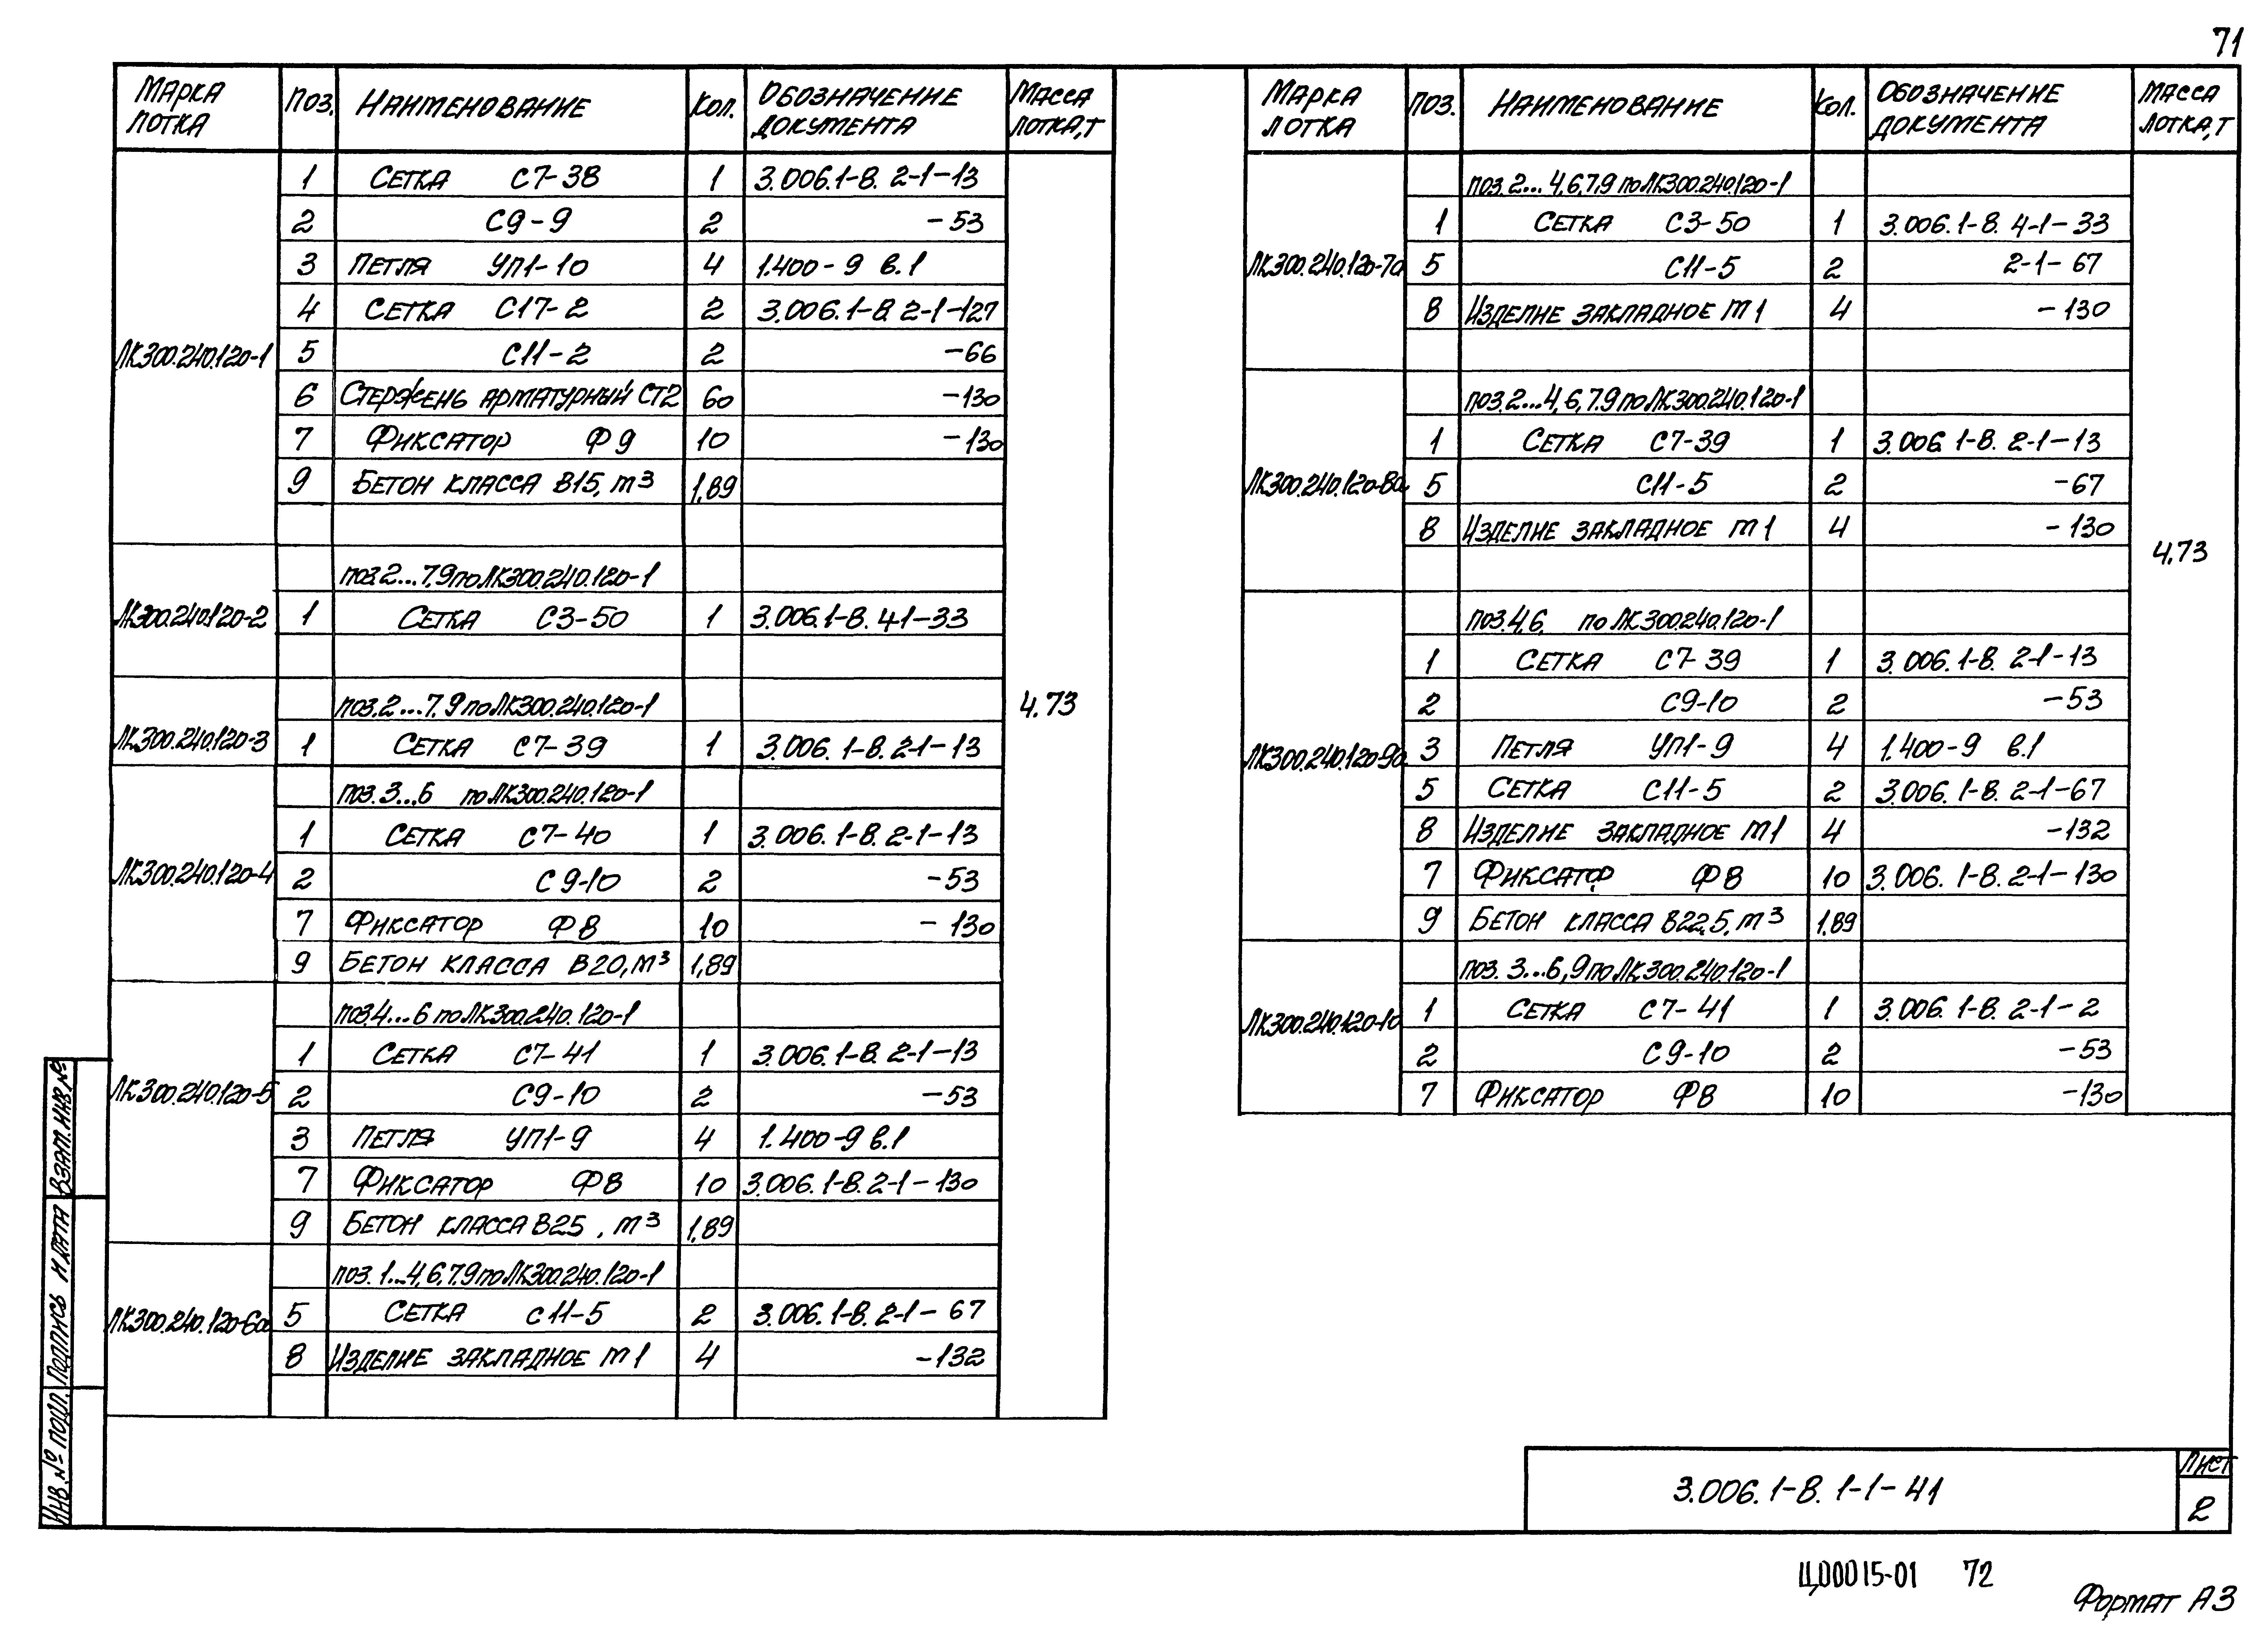 71
МАРКА ЛОТКА ПОЗ. НАИМЕНОВАНИЕ КОЛ. ОБОЗНАЧЕНИЕ ДОКУМЕНТА МАССА ЛОТКА,Т
ЛК300.240.120-1
1 СЕТКА С7-38 1 3.006.1-8. 2-1-13
2 С9-9 2 -53
3 ПЕТЛЯ УП1-10 4 1.400-9 в.1
4 СЕТКА С17-2 2 3.006.1-8. 2-1-127
5 С11-2 2 -66
6 СТЕРЖЕНЬ АРМАТУРНЫЙ СТ2 60 -130
7 ФИКСАТОР Ф9 10 -130
9 БЕТОН КЛАССА В15, м³ 1,89
ЛК300.240.120-2
поз.2...7,9 по ЛК300.240.120-1
1 СЕТКА С3-50 1 3.006.1-8. 4-1-33
ЛК300.240.120-3
поз.2...7,9 по ЛК300.240.120-1
1 СЕТКА С7-39 1 3.006.1-8. 2-1-13
4.73
ЛК300.240.120-4
поз.3...6 по ЛК300.240.120-1
1 СЕТКА С7-40 1 3.006.1-8. 2-1-13
2 С9-10 2 -53
7 ФИКСАТОР Ф8 10 -130
9 БЕТОН КЛАССА В20, м³ 1,89
ЛК300.240.120-5
поз.4...6 по ЛК300.240.120-1
1 СЕТКА С7-41 1 3.006.1-8. 2-1-13
2 С9-10 2 -53
3 ПЕТЛЯ УП1-9 4 1.400-9 в.1
7 ФИКСАТОР Ф8 10 3.006.1-8. 2-1-130
9 БЕТОН КЛАССА В25, м³ 1,89
ЛК300.240.120-6а
поз.1...4,6,7,9 по ЛК300.240.120-1
5 СЕТКА С11-5 2 3.006.1-8. 2-1-67
8 ИЗДЕЛИЕ ЗАКЛАДНОЕ М1 4 -132
МАРКА ЛОТКА ПОЗ. НАИМЕНОВАНИЕ КОЛ. ОБОЗНАЧЕНИЕ ДОКУМЕНТА МАССА ЛОТКА,Т
ЛК300.240.120-7а
поз.2...4,6,7,9 по ЛК300.240.120-1
1 СЕТКА С3-50 1 3.006.1-8. 4-1-33
5 С11-5 2 2-1-67
8 ИЗДЕЛИЕ ЗАКЛАДНОЕ М1 4 -130
ЛК300.240.120-8а
поз.2...4,6,7,9 по ЛК300.240.120-1
1 СЕТКА С7-39 1 3.006.1-8. 2-1-13
5 С11-5 2 -67
8 ИЗДЕЛИЕ ЗАКЛАДНОЕ М1 4 -130
4.73
ЛК300.240.120-9а
поз.4,6, по ЛК300.240.120-1
1 СЕТКА С7-39 1 3.006.1-8. 2-1-13
2 С9-10 2 -53
3 ПЕТЛЯ УП1-9 4 1.400-9 в.1
5 СЕТКА С11-5 2 3.006.1-8. 2-1-67
8 ИЗДЕЛИЕ ЗАКЛАДНОЕ М1 4 -132
7 ФИКСАТОР Ф8 10 3.006.1-8. 2-1-130
9 БЕТОН КЛАССА В22,5, м³ 1,89
ЛК300.240.120-10
поз.3...6,9 по ЛК300.240.120-1
1 СЕТКА С7-41 1 3.006.1-8. 2-1-2
2 С9-10 2 -53
7 ФИКСАТОР Ф8 10 -130
ИНВ.№ ПОДЛ. ПОДПИСЬ И ДАТА ВЗАМ.ИНВ.№
3.006.1-8. 1-1-41
ЛИСТ
2
Ц00015-01 72
ФОРМАТ А3